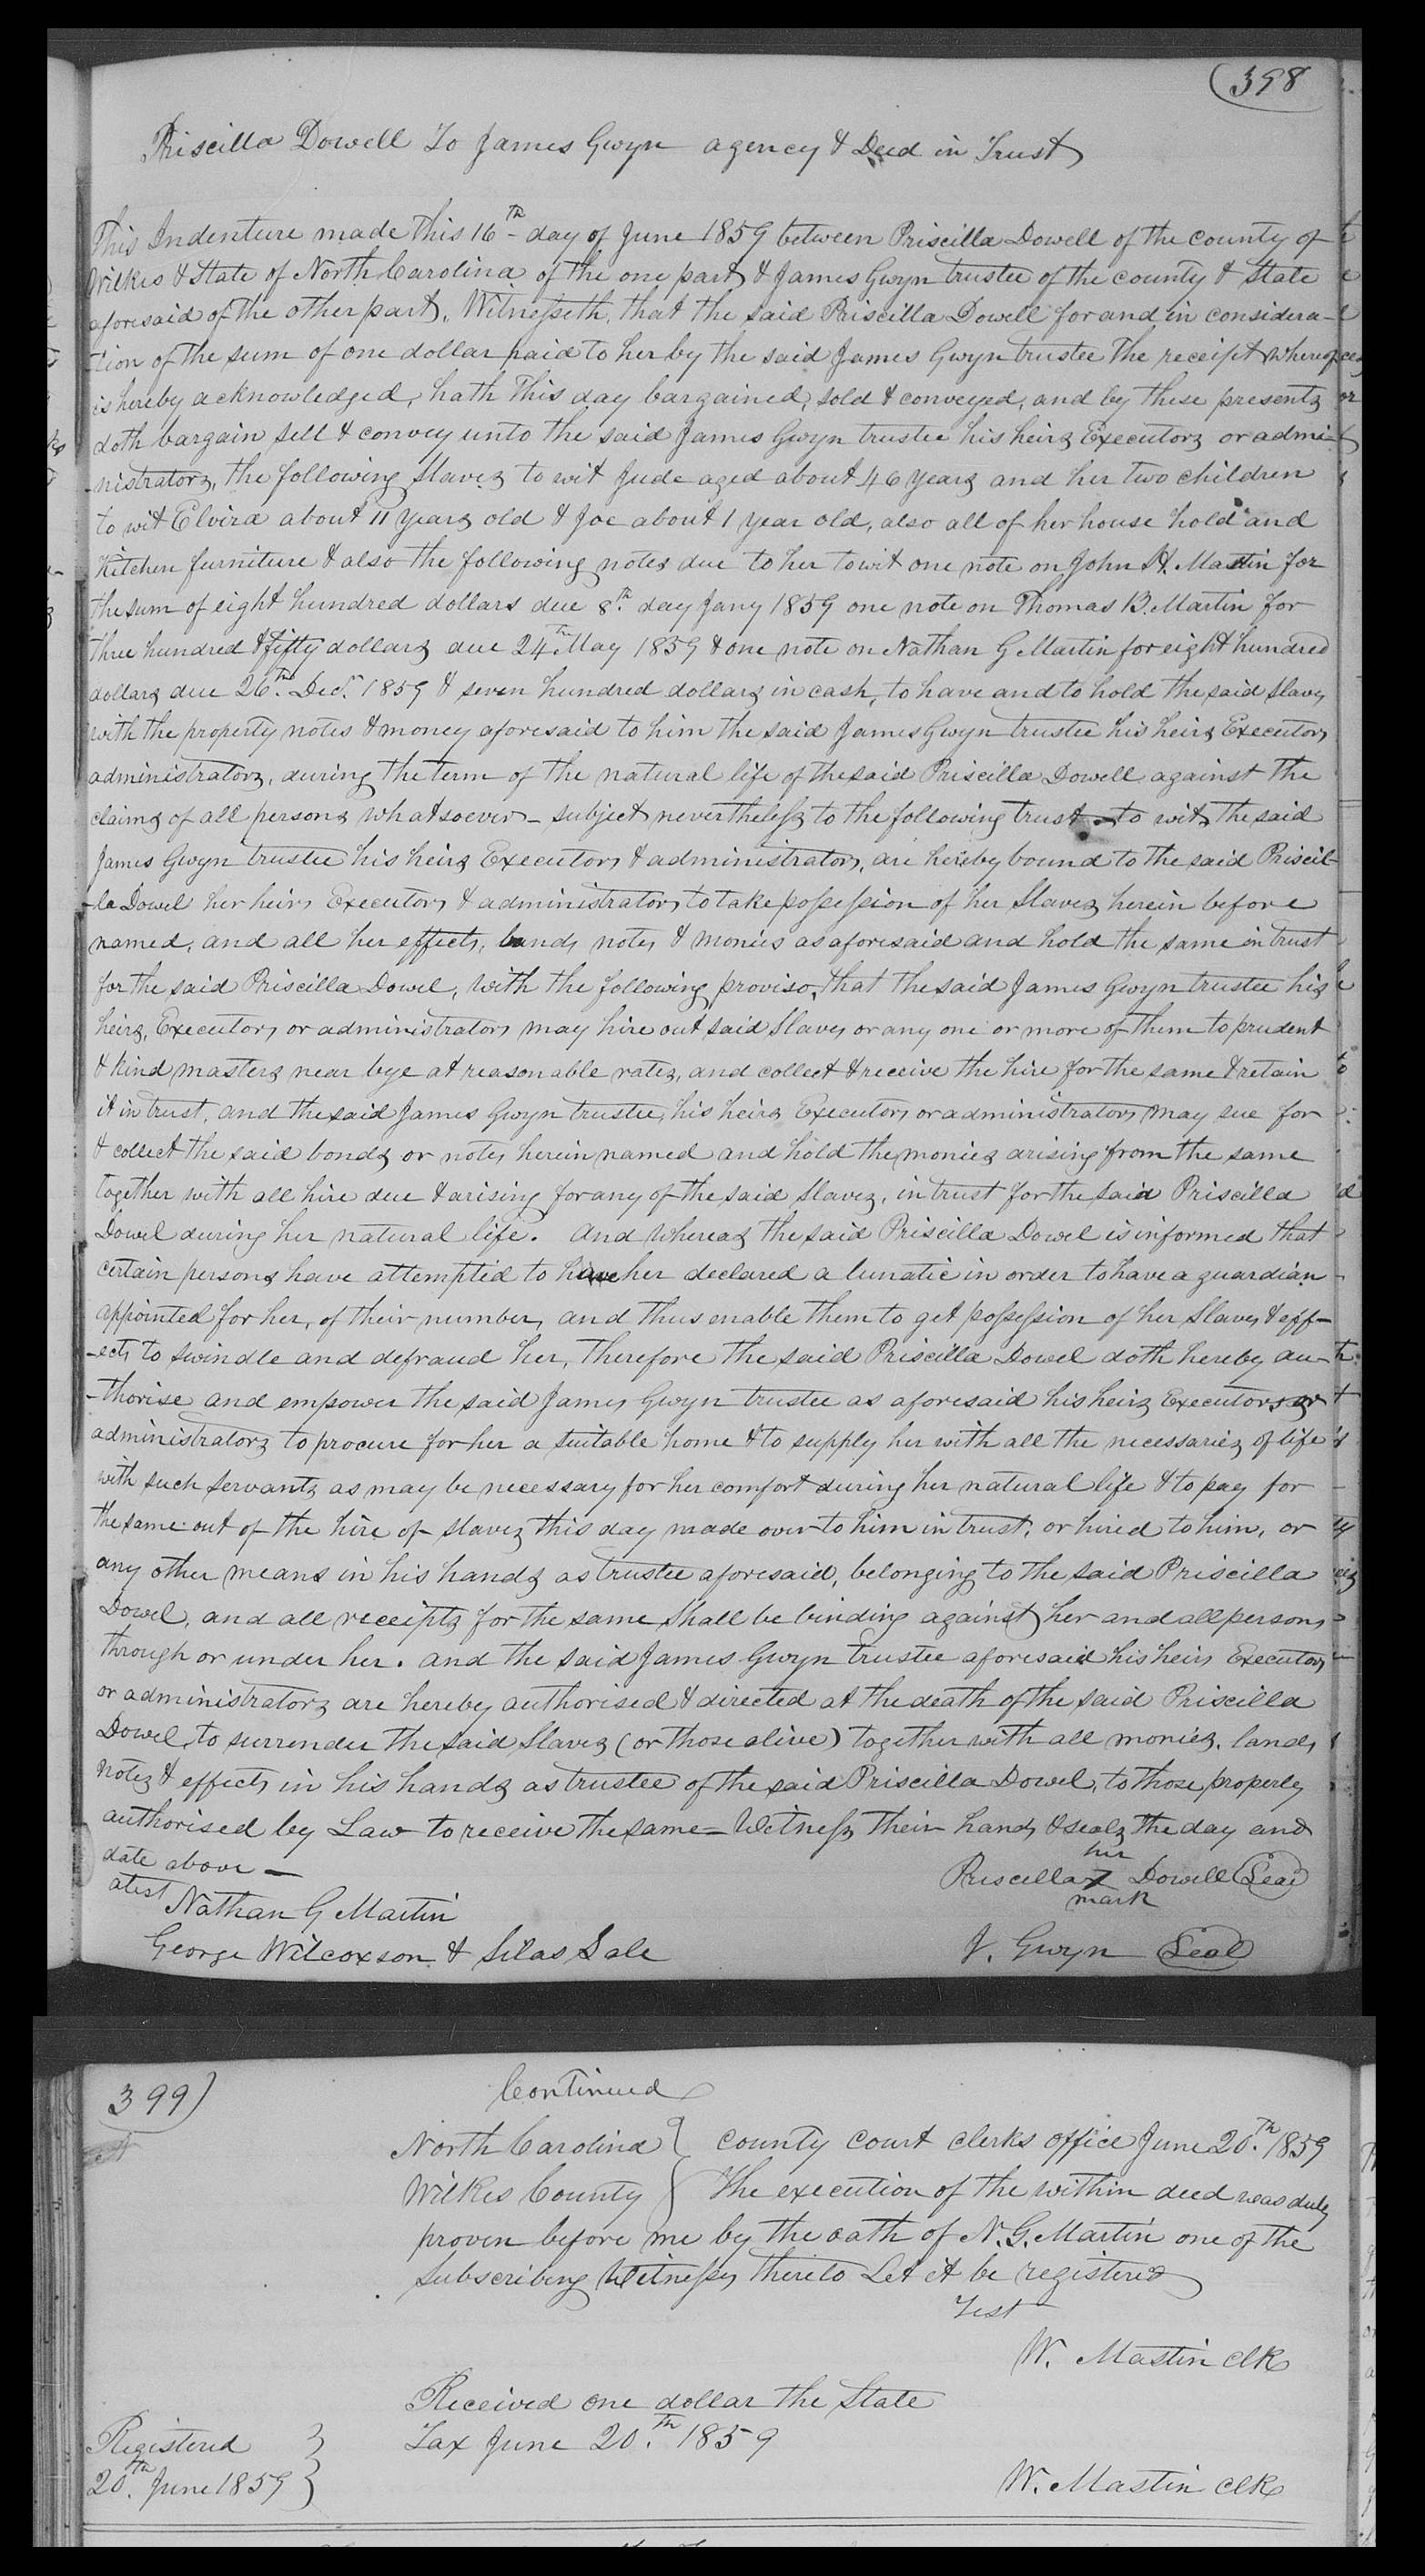 (398
Priscilla Dowell To James Gwyn agency & Deed in Trust
This Indenture made this 16th day of June 1859 between Priscilla Dowell of the county of
Wilkes & State of North Carolina of the one part & James Gwyn trustee of the county & State
aforesaid of the other part, Witnesseth, that the said Priscilla Dowell for and in considera-
-tion of the sum of one dollar paid to her by the said James Gwyn trustee the receipt whereof
is hereby acknowledged, hath this day bargained, sold & conveyed, and by these presents
doth bargain sell & convey unto the said James Gwyn trustee his heirs Executors or admi-
-nistrators, the following slaves to wit Jude aged about 46 years and her two children
to wit Elvira about 11 years old & Joe about 1 year old, also all of her house hold and
Kitchen furniture & also the following notes due to her towit one note on John H. Mastin for
the sum of eight hundred dollars due 8th day Jany 1859 one note on Thomas B. Martin for
three hundred & fifty dollars due 24th May 1859 & one note on Nathan G Martin for eight hundred
dollars due 26th Decr. 1859 & seven hundred dollars in cash, to have and to hold the said slaves
with the property notes & money aforesaid to him the said James Gwyn trustee his heirs Executors
administrators, during the term of the natural life of the said Priscilla Dowell against the
claims of all persons whatsoever - subject nevertheless to the following trust - to wit, the said
James Gwyn trustee his heirs Executors & administrators, are hereby bound to the said Priscil-
-la Dowel her heirs Executors & administrators to take possession of her slaves herein before
named, and all her effects, bonds notes & monies as aforesaid and hold the same in trust
for the said Priscilla Dowel, with the following proviso, that the said James Gwyn trustee his
heirs, Executors or administrators may hire out said slaves or any one or more of them to prudent
& kind masters near bye at reasonable rates, and collect & receive the hire for the same & retain
it in trust, and the said James Gwyn trustee, his heirs Executors or administrators may sue for
& collect the said bonds or notes herein named and hold the monies arising from the same
together with all hire due & arising for any of the said slaves, in trust for the said Priscilla
Dowel during her natural life. And whereas the said Priscilla Dowel is informed that
certain persons have attempted to have her declared a lunatic in order to have a guardian
appointed for her, of their number, and thus enable them to get possession of her slaves & eff-
-ects to swindle and defraud her, therefore the said Priscilla Dowel doth hereby au-
-thorise and empower the said James Gwyn trustee as aforesaid his heirs Executors or
administrators to procure for her a suitable home & to supply her with all the necessaries of life
with such servants as may be necessary for her comfort during her natural life & to pay for
the same out of the hire of slaves this day made over to him in trust, or hired to him, or
any other means in his hands as trustee aforesaid, belonging to the said Priscilla
Dowel, and all receipts for the same shall be binding against her and all persons
through or under her. and the said James Gwyn trustee aforesaid his heirs Executors
or administrators are hereby authorised & directed at the death of the said Priscilla
Dowel, to surrender the said slaves (or those alive) together with all monies, lands
notes & effects in his hands as trustee of the said Priscilla Dowel, to those properly
authorised by Law to receive the same = Witness their hands & seals the day and
date above -
her
Priscilla X Dowell (Seal)
mark
atest
Nathan G Martin
George Wilcoxson & Silas Sale
J. Gwyn (Seal)
399)
Continued
North Carolina } county court clerks office June 20th 1859
Wilkes County } The execution of the within deed was duly
proven before me by the oath of N. G. Martin one of the
subscribing Witnesses thereto Let it be registered
Test
W. Mastin clk
Received one dollar the State
Tax June 20th 1859
Registered }
20th June 1859 }
W. Mastin clk